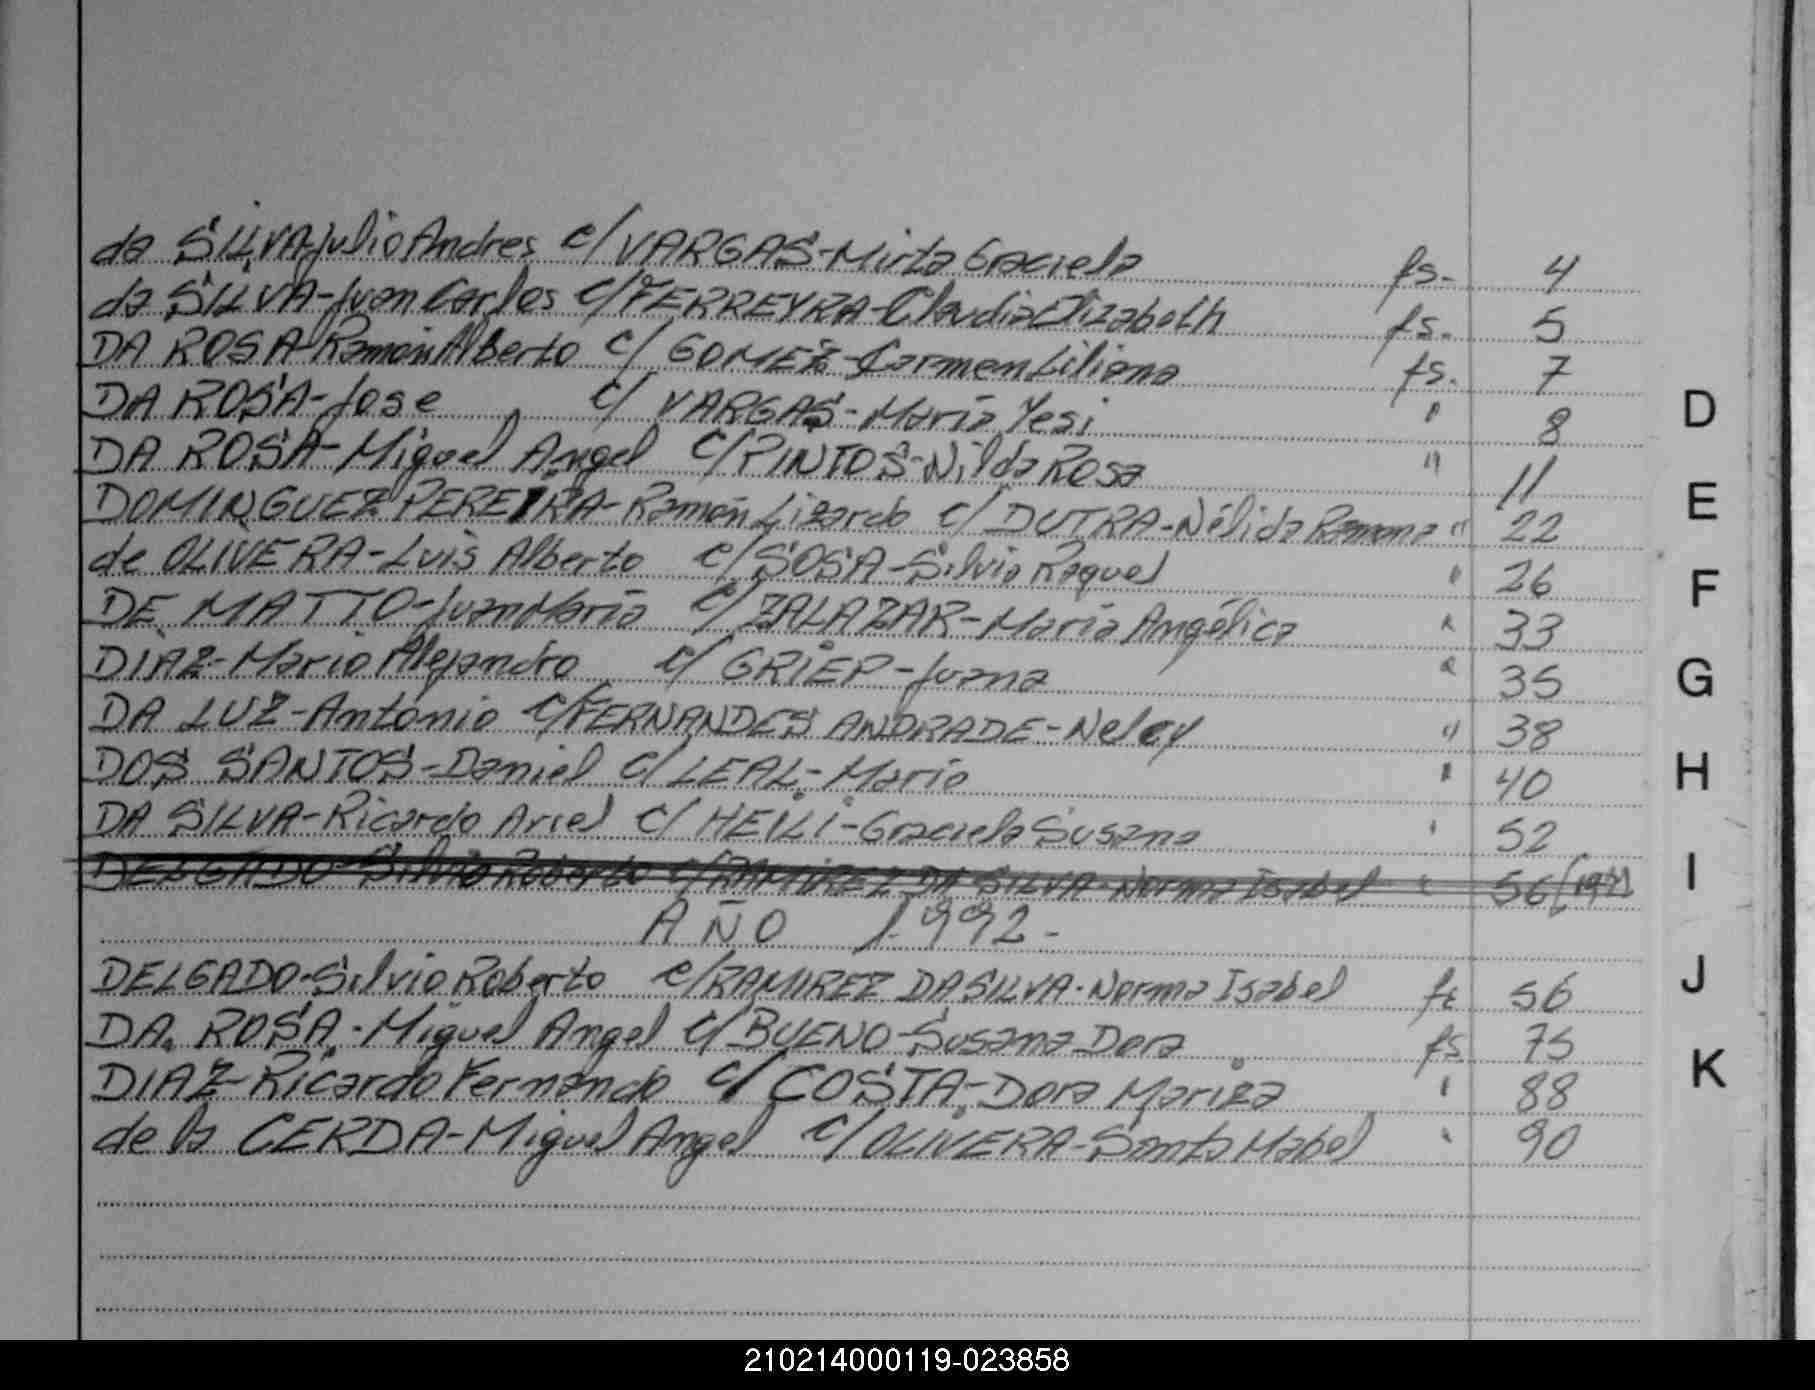 da SILVA-Julio Andres c/ VARGAS-Mirta Graciela fs. 4
da SILVA-Juan Carlos c/ FERREYRA-Claudia Elizabeth fs. 5
DA ROSA-Ramón Alberto c/ GOMEZ-Carmen Liliana fs. 7
DA ROSA-Jose c/ VARGAS-María Yesi " 8
DA ROSA-Miguel Angel c/ PINTOS-Nilda Rosa " 11
DOMINGUEZ PEREIRA-Ramón Lizardo c/ DUTRA-Nélida Ramona " 22
de OLIVERA-Luis Alberto c/ SOSA-Silvia Raquel " 26
DE MATTO-Juan María c/ ZALAZAR-María Angélica " 33
DIAZ-Mario Alejandro c/ GRIEP-Juana " 35
DA LUZ-Antonio c/ FERNANDES ANDRADE-Neley " 38
DOS SANTOS-Daniel c/ LEAL-María " 40
DA SILVA-Ricardo Ariel c/ HEILI-Graciela Susana " 52
DELGADO-Silvio Roberto c/ RAMIREZ DA SILVA-Norma Isabel " 56
AÑO 1992-
DELGADO-Silvio Roberto c/ RAMIREZ DA SILVA-Norma Isabel fs 56
DA ROSA-Miguel Angel c/ BUENO-Susana Dora fs 75
DIAZ-Ricardo Fernando c/ COSTA-Dora Mariza " 88
de la CERDA-Miguel Angel c/ OLIVERA-Santa Mabel " 90
D
E
F
G
H
I
J
K
210214000119-023858